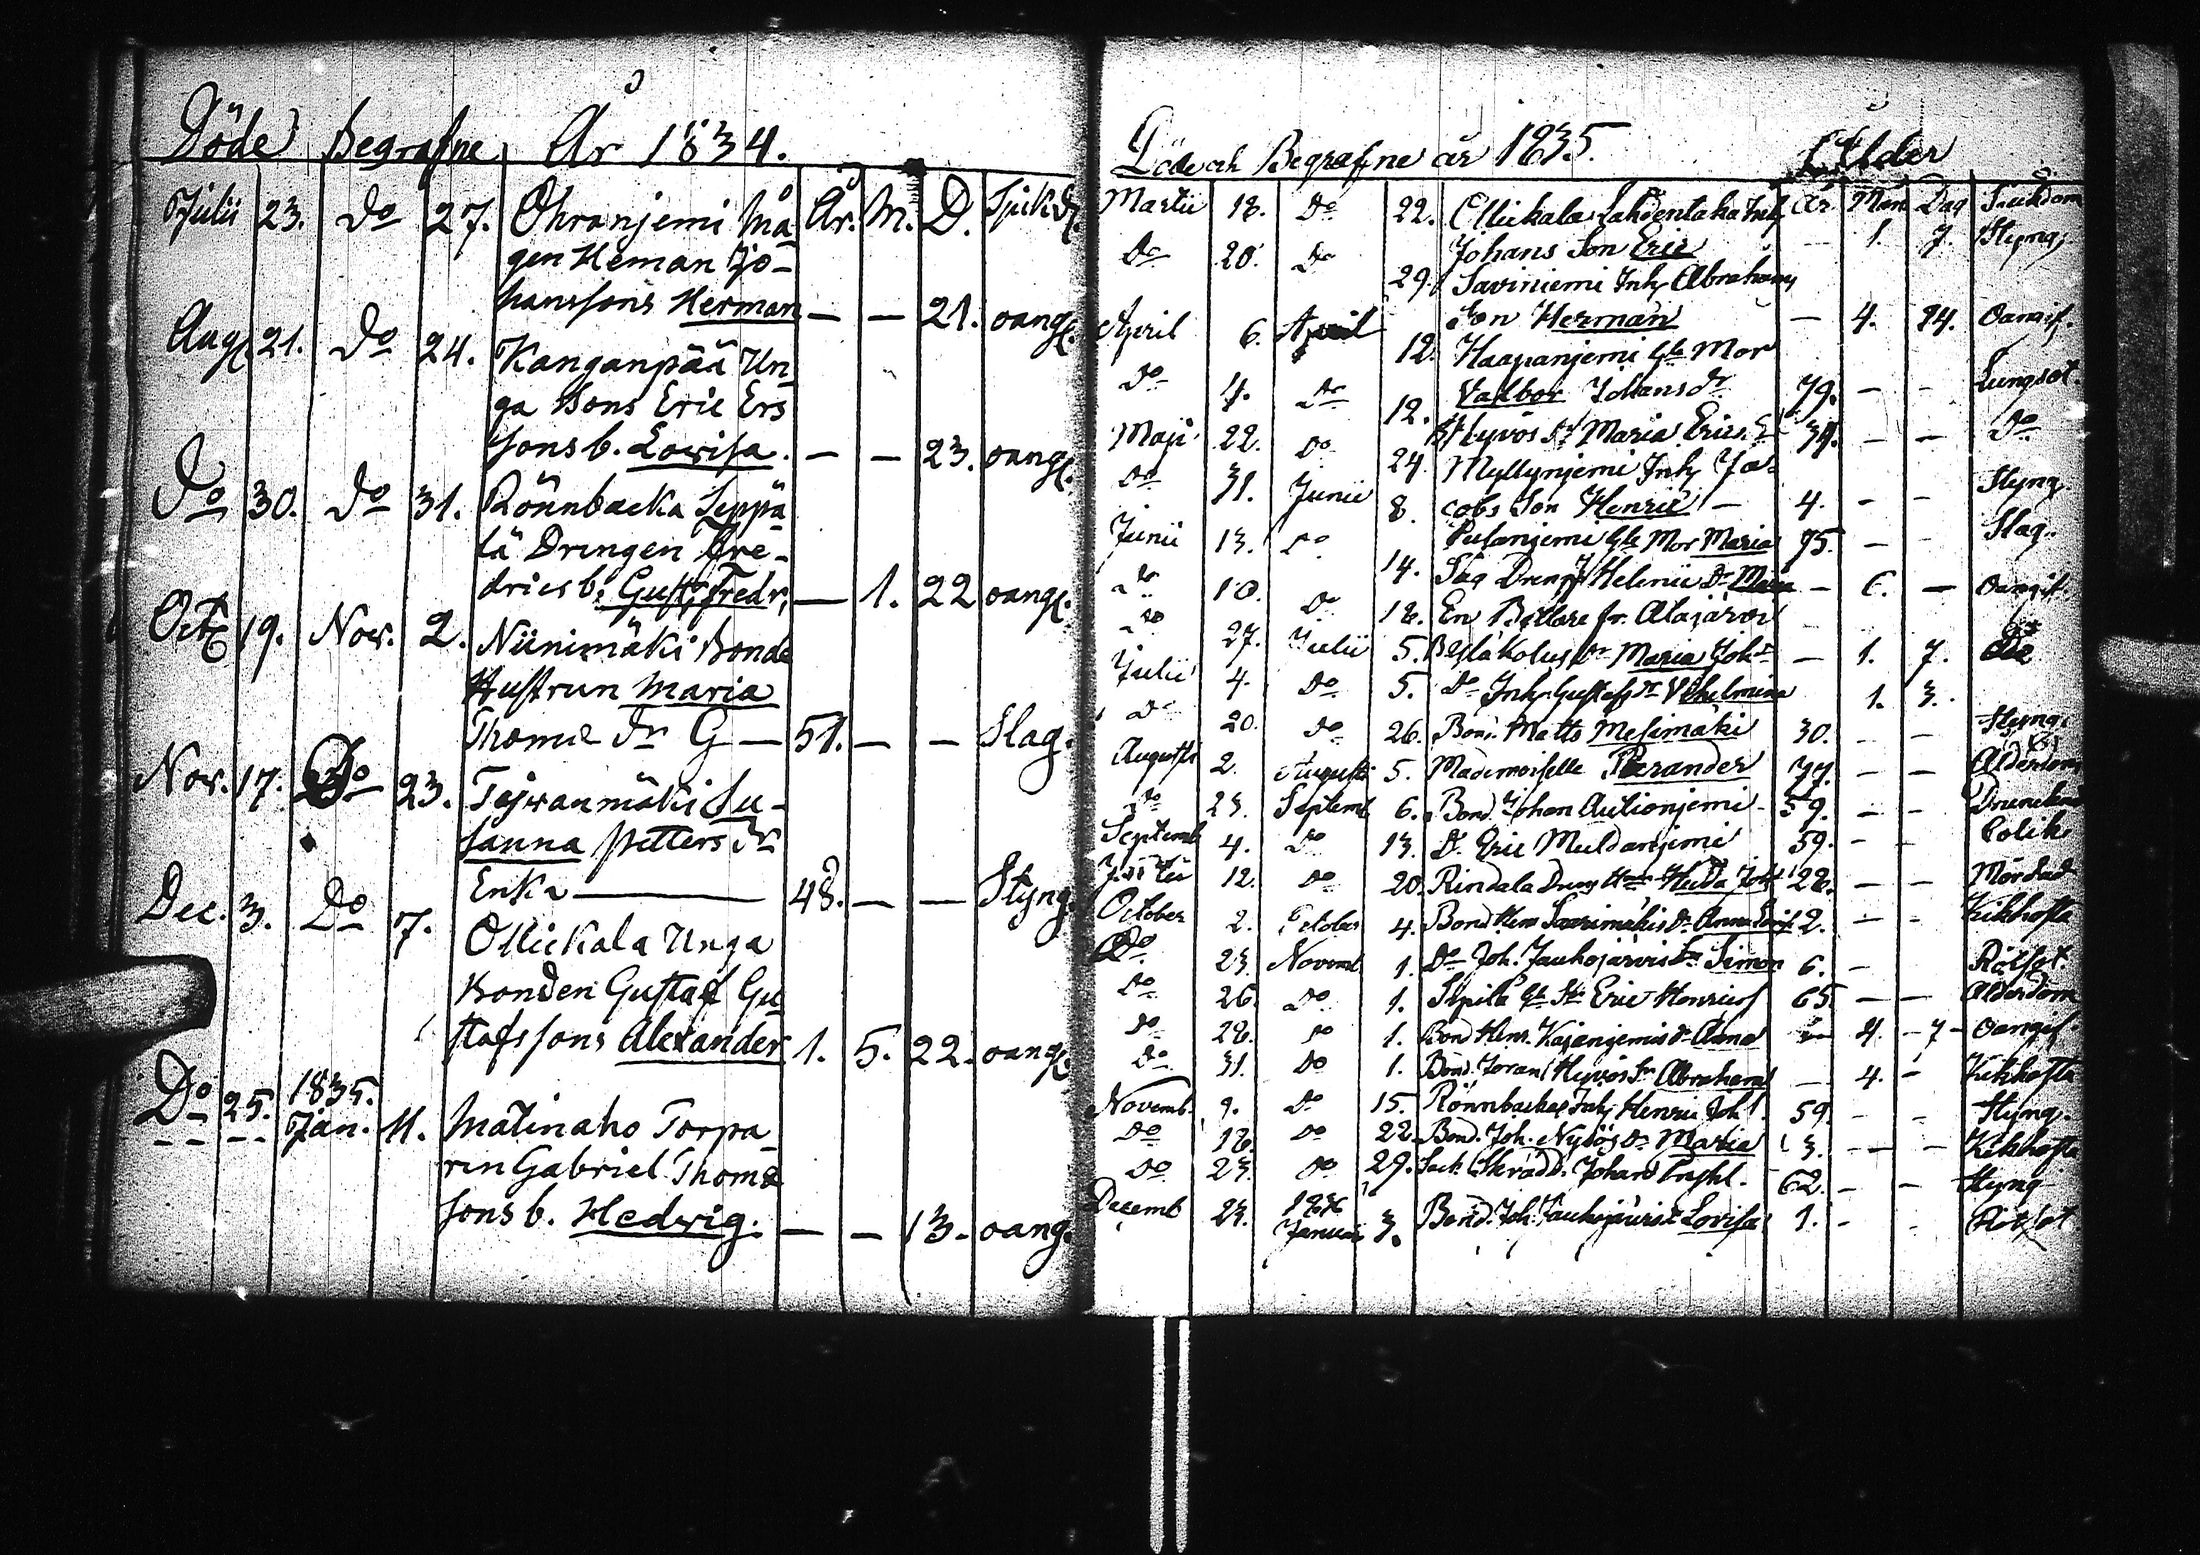 Döde Begrafne År 1834.
Julii 23. Do 27. Ohranjemi Må År. M. D. Sjukd.
gen Heman Jo-
hanssons Herman — — 21. oang.
Aug. 21. Do 24. Kanganpää Un
ga Bons Eric Ers
sons b. Lovisa. — — 23. oang.
Do 30. Do 31. Rönnbacka Seppä
lä Drengen Fre-
drics b. Gust. Fredr. — 1. 22 oang.
Oct. 19. Nov. 2. Niinimäki Bonde
Hustrun Maria
Thomæ dr G — 51. — — Slag.
Nov. 17. Do 23. Tejvanmäki Su-
sanna Petters dr
Enka — 48. — — Styng
Dec. 3. Do 7. Ollickala Unga
Bonden Gustaf Gu
stafssons Alexander 1. 5. 22. oang.
Do 25. 1835. Jan. 11. Matinaho Torpa
ren Gabriel Thomæ
sons b. Hedvig. — — 13. oang.
Döde och Begrafne år 1835. Ålder
Martii 18. Do 22. Ollickala Lahdentaka Inh År. Mån Dag Siukdom
Johans Son Eric — 1. 7. Styng.
Do 20. Do 29. Saviniemi Inh Abrahams
Son Herman — 4. 14. Oangif.
April 6. April 12. Haapanjemi Gle Mor
Valbor Johans dr 79. — — Lungsot.
Do 4. Do 12. Hyvös Maria Erics dr 34. — — Do
Maji 22. Do 24. Myllynjemi Inh Ja-
cobs Son Henric — 4. — — Styng
Do 31. Junii 8. Gle Mor Maria 75. — — Slag.
Junii 13. Do 14. Dr Maria — 6. — Oangif.
Do 18. Do 18. En fr. Alajärvi
Do 27. Julii 5. Dr Maria Joh. — 1. 7.
Julii 4. Do 5. Do Inh Gustafs dr Vilhelmina 1. 3.
Do 20. Do 26. Bond. Matts Mesimäki 30. — — Styng.
Augusti 2. Augusti 5. Mademoiselle 77. — — Ålderdom
Do 23. Septemb 6. Bond. Johan Autionjemi 59. — —
Septemb 4. Do 13. Do Eric Muldanjemi 59. — — Colik
12. Do 20. Rindala Heda Joh 28. — — Mördad
October 2. October 4. Bond Hen Saarimäkis dr Anna 2. — — Kikhosta
Do 23. Novemb 1. Do Joh. Jauhojärvis Sn Simon 6. — Rötfeb.
Do 26. Do 1. Sepilä Gle Eric Henrics 65 — — Ålderdom
Do 28. Do 1. Bond Henr. Kajanjemis dr Anna — 4. 7 Oangif.
Do 31. Do 1. Bond. Hyvös Sn Abraham — 4. — Kikhosta
Novemb. 9. Do 15. Rönnbacka Inh Henric Joh. 59. — — Styng.
Do 18. Do 22. Bond. Joh. dr Maria 3. — — Kikhosta
Do 23. Do 29. Sock. Skrädd. Johan 62. — — Styng
Decemb 23. 1836 Januari 3. Bond. Joh. Jauhojärvis dr Lovisa 1. — —